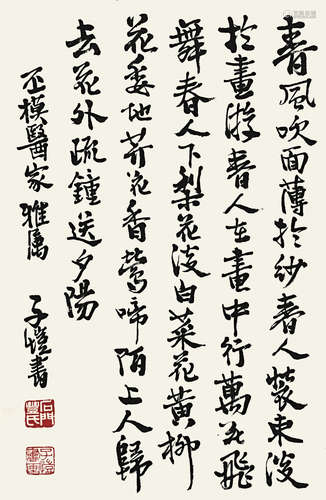 春風吹面薄於紗春人裝束淡
於畫游春人在畫中行萬花飛
舞春人下梨花淡白菜花黃柳
花委地芥花香鶯啼陌上人歸
去花外疏鍾送夕陽
丕模醫家雅屬
子愷書
石門豐氏